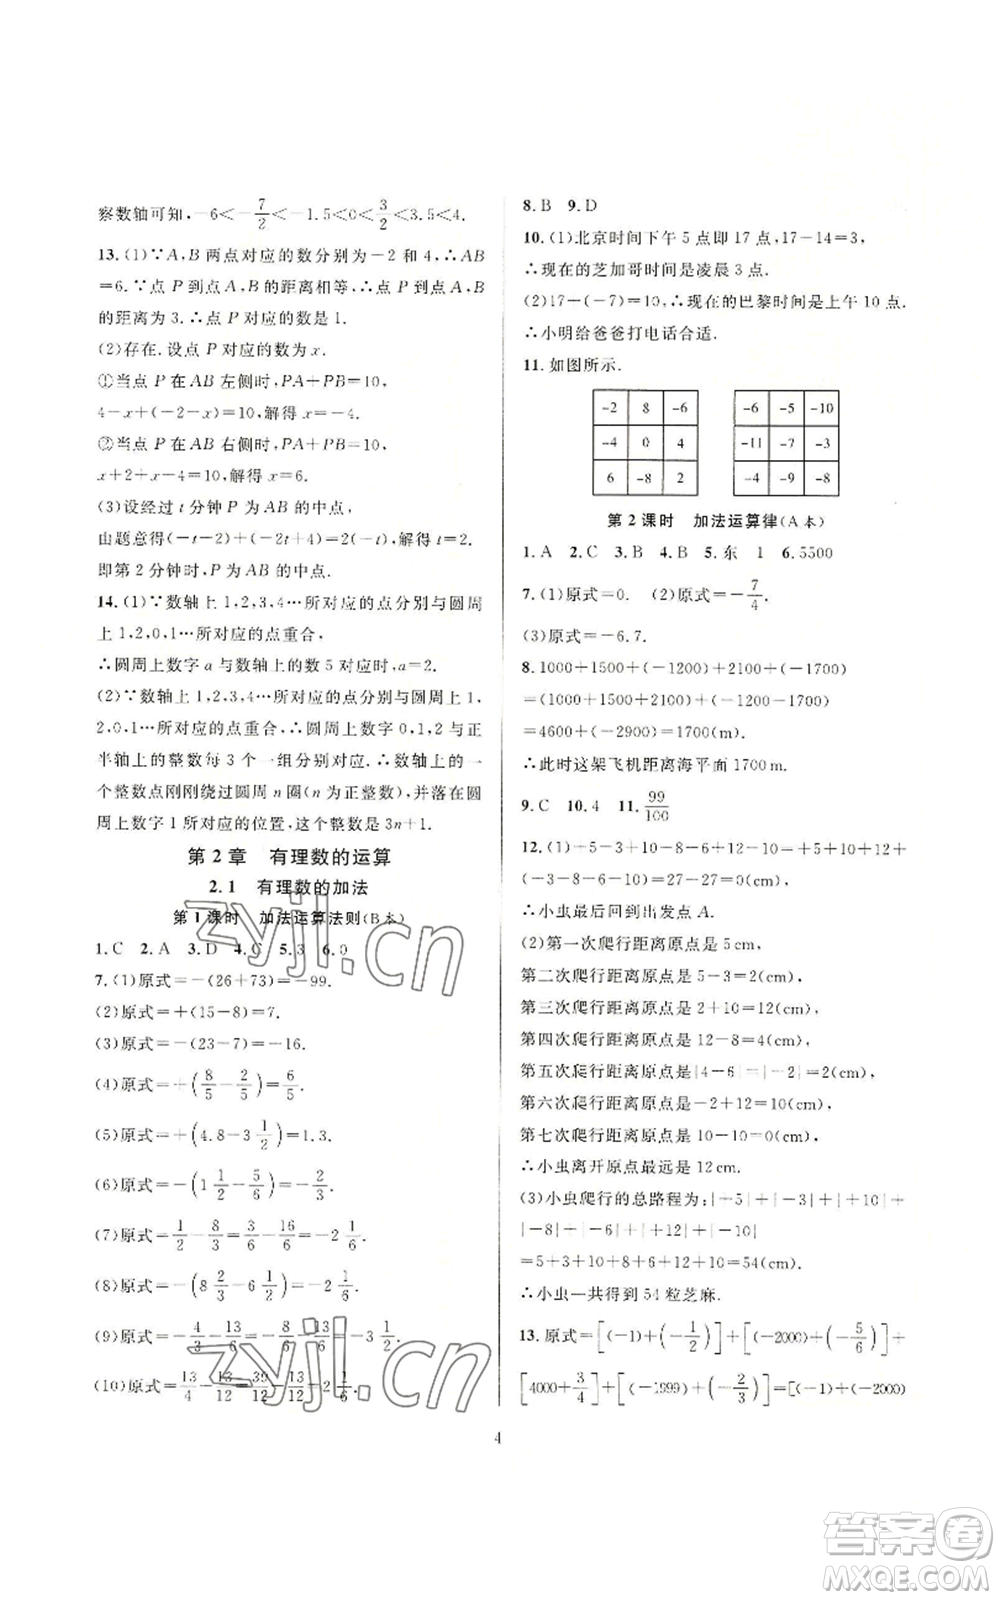 察数轴可知,-6<-7/2<-1.5<0<3/2<3.5<4.
13.(1)∵A,B两点对应的数分别为-2和4,∴AB
=6.∵点P到点A,B的距离相等,∴点P到点A,B
的距离为3.∴点P对应的数是1.
(2)存在.设点P对应的数为x.
①当点P在AB左侧时,PA+PB=10,
4-x+(-2-x)=10,解得x=-4.
②当点P在AB右侧时,PA+PB=10,
x+2+x-4=10,解得x=6.
(3)设经过t分钟P为AB的中点.
由题意得(-t-2)+(-2t+4)=-t×2,解得t=2.
即第2分钟时,P为AB的中点.
14.(1)∵数轴上1,2,3,4…所对应的点分别与圆周
上1,2,0,1…所对应的点重合,
∴圆周上数字a与数轴上的数5对应时,a=2.
(2)∵数轴上1,2,3,4…所对应的点分别与圆周上1,
2,0,1…所对应的点重合,∴圆周上数字0,1,2与正
半轴上的整数每3个一组分别对应.∴数轴上的一个
整数点刚刚绕过圆周n圈(n为正整数),并落在圆
周上数字1所对应的位置,这个整数是3n+1.
第2章 有理数的运算
2.1 有理数的加法
第1课时 加法运算法则(B本)
1.C 2.A 3.D 4.C 5.3 6.0
7.(1)原式=-(26+73)=-99.
(2)原式=+(15-8)=7.
(3)原式=-(23-7)=-16.
(4)原式=+(8/5-2/5)=6/5.
(5)原式=+(4.8-3 1/2)=1.3.
(6)原式=-(1 1/2-5/6)=-2/3.
(7)原式=1/2-8/3=3/6-16/6=-2 1/6.
(8)原式=-(8 2/3-6 1/2)=-2 1/6.
(9)原式=-4/3-13/6=-8/6-13/6=-3 1/2.
(10)原式=-13/4-13/12=39/12-13/12=2 1/6.
8.B 9.D
10.(1)北京时间下午5点即17点,17-14=3,
∴现在的芝加哥时间是凌晨3点.
(2)17+(-7)=10,∴现在的巴黎时间是上午10点.
∴小明给爸爸打电话合适.
11.如图所示.
-2 8 -6
-4 0 4
6 -8 2
-6 -5 -10
-11 -7 -3
-4 -9 -8
第2课时 加法运算律(A本)
1.A 2.C 3.B 4.B 5.东 1 6.5500
7.(1)原式=0. (2)原式=-7/4.
(3)原式=-6.7.
8.1000+1500+(-1200)+2100+(-1700)
=(1000+1500+2100)+(-1200-1700)
=4600+(-2900)=1700(m).
∴此时这架飞机距离海平面1700m.
9.C 10.4 11.99/100
12.(1)+5-3+10-8-6+12-10=(5+10+12)+
(-3-8-6-10)=27-27=0(cm).
∴小虫最后回到出发点A.
(2)第一次爬行距离原点是5cm,
第二次爬行距离原点是5-3=2(cm),
第三次爬行距离原点是2+10=12(cm),
第四次爬行距离原点是12-8=4(cm),
第五次爬行距离原点是|4-6|=|-2|=2(cm),
第六次爬行距离原点是-2+12=10(cm),
第七次爬行距离原点是10-10=0(cm),
∴小虫离开原点最远是12cm.
(3)小虫爬行的总路程为:|+5|+|-3|+|+10|+
|-8|+|-6|+|+12|+|-10|
=5+3+10+8+6+12+10=54(cm).
∴小虫一共得到54粒芝麻.
13.原式=[(-1)+(-1/2)]+[(-2000)+(-5/6)]+
[4000+3/4]+[(-1999)+(-2/3)]=[(-1)+(-2000)
4
zyjl.cn
zyjl.cn
答案卷
MXQE.COM